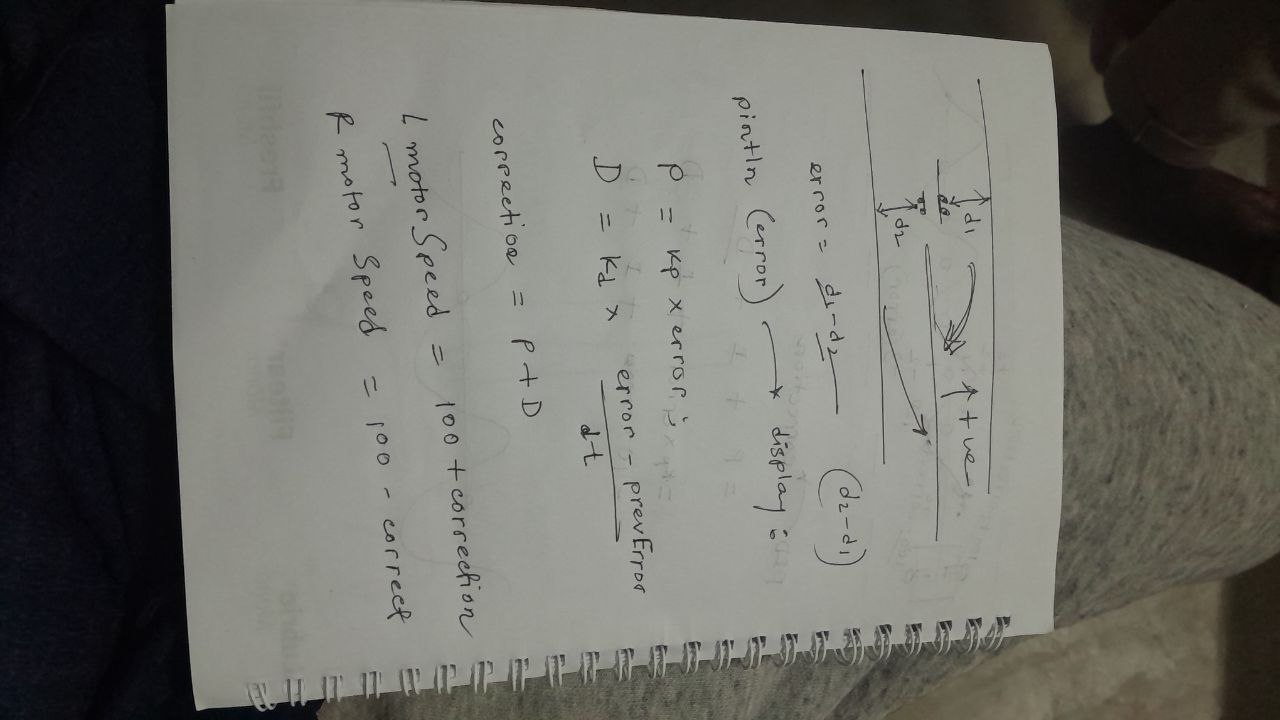 d1
d2
↑ +ve
error = d1 - d2 (d2 - d1)
println (error) → display :
P = Kp × error ;
D = Kd × error - prevError
dt
correction = P + D
L motor Speed = 100 + correction
R motor Speed = 100 - correct